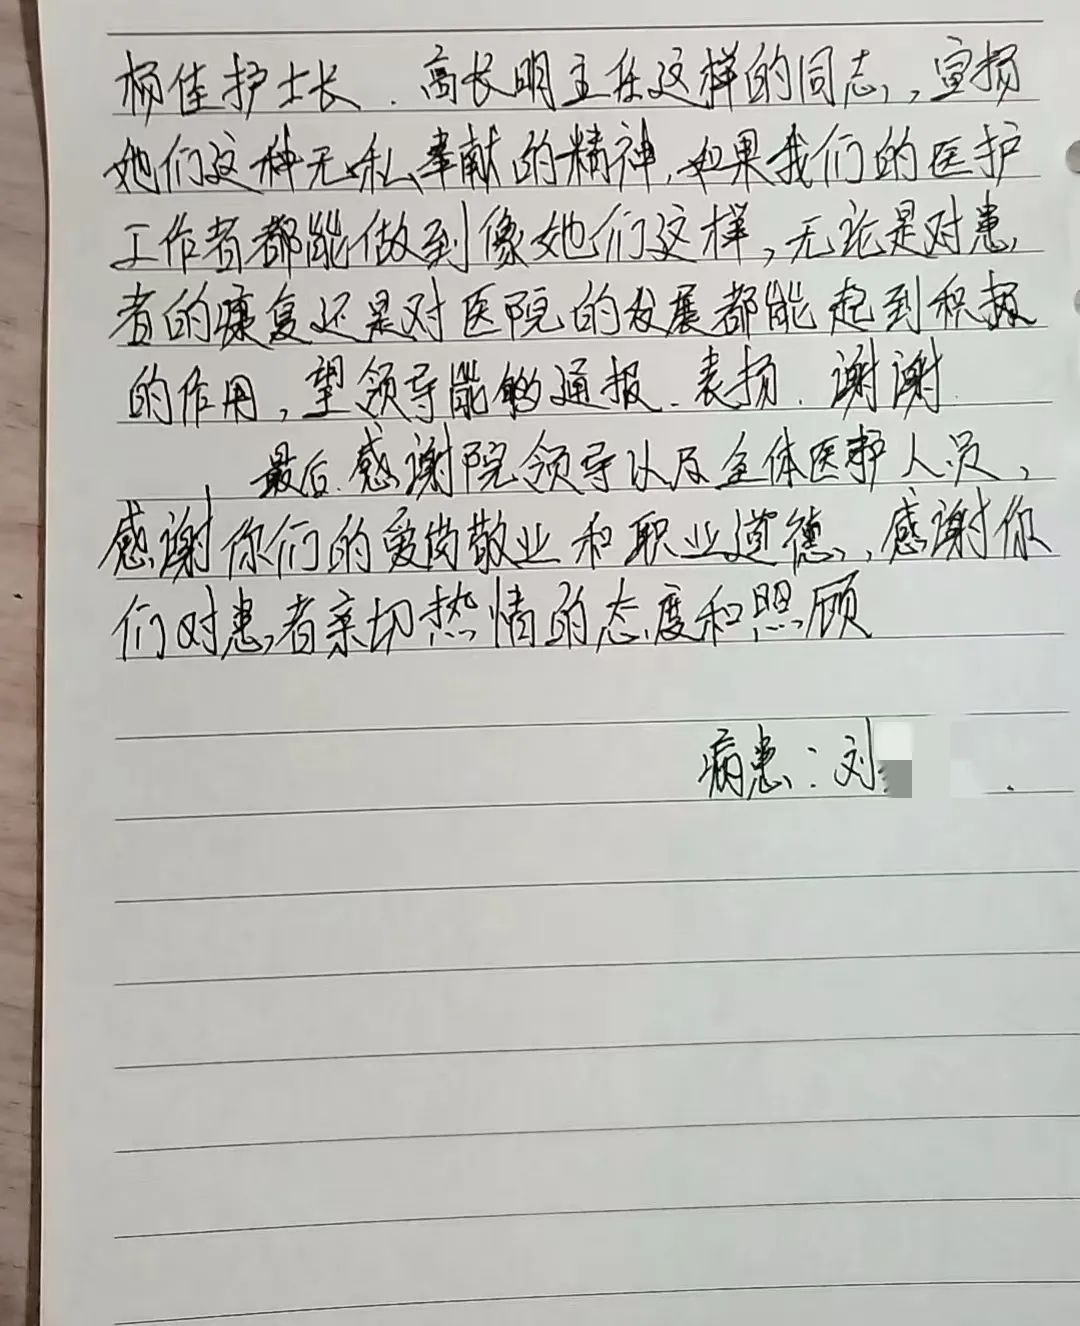 杨佳护士长、高长明主任这样的同志，宣扬
她们这种无私奉献的精神，如果我们的医护
工作者都能做到像她们这样，无论是对患
者的康复还是对医院的发展都能起到积极
的作用，望领导能够通报、表扬、谢谢
最后、感谢院领导以及全体医护人员，
感谢你们的爱岗敬业和职业道德，感谢你
们对患者亲切热情的态度和照顾
病患：刘